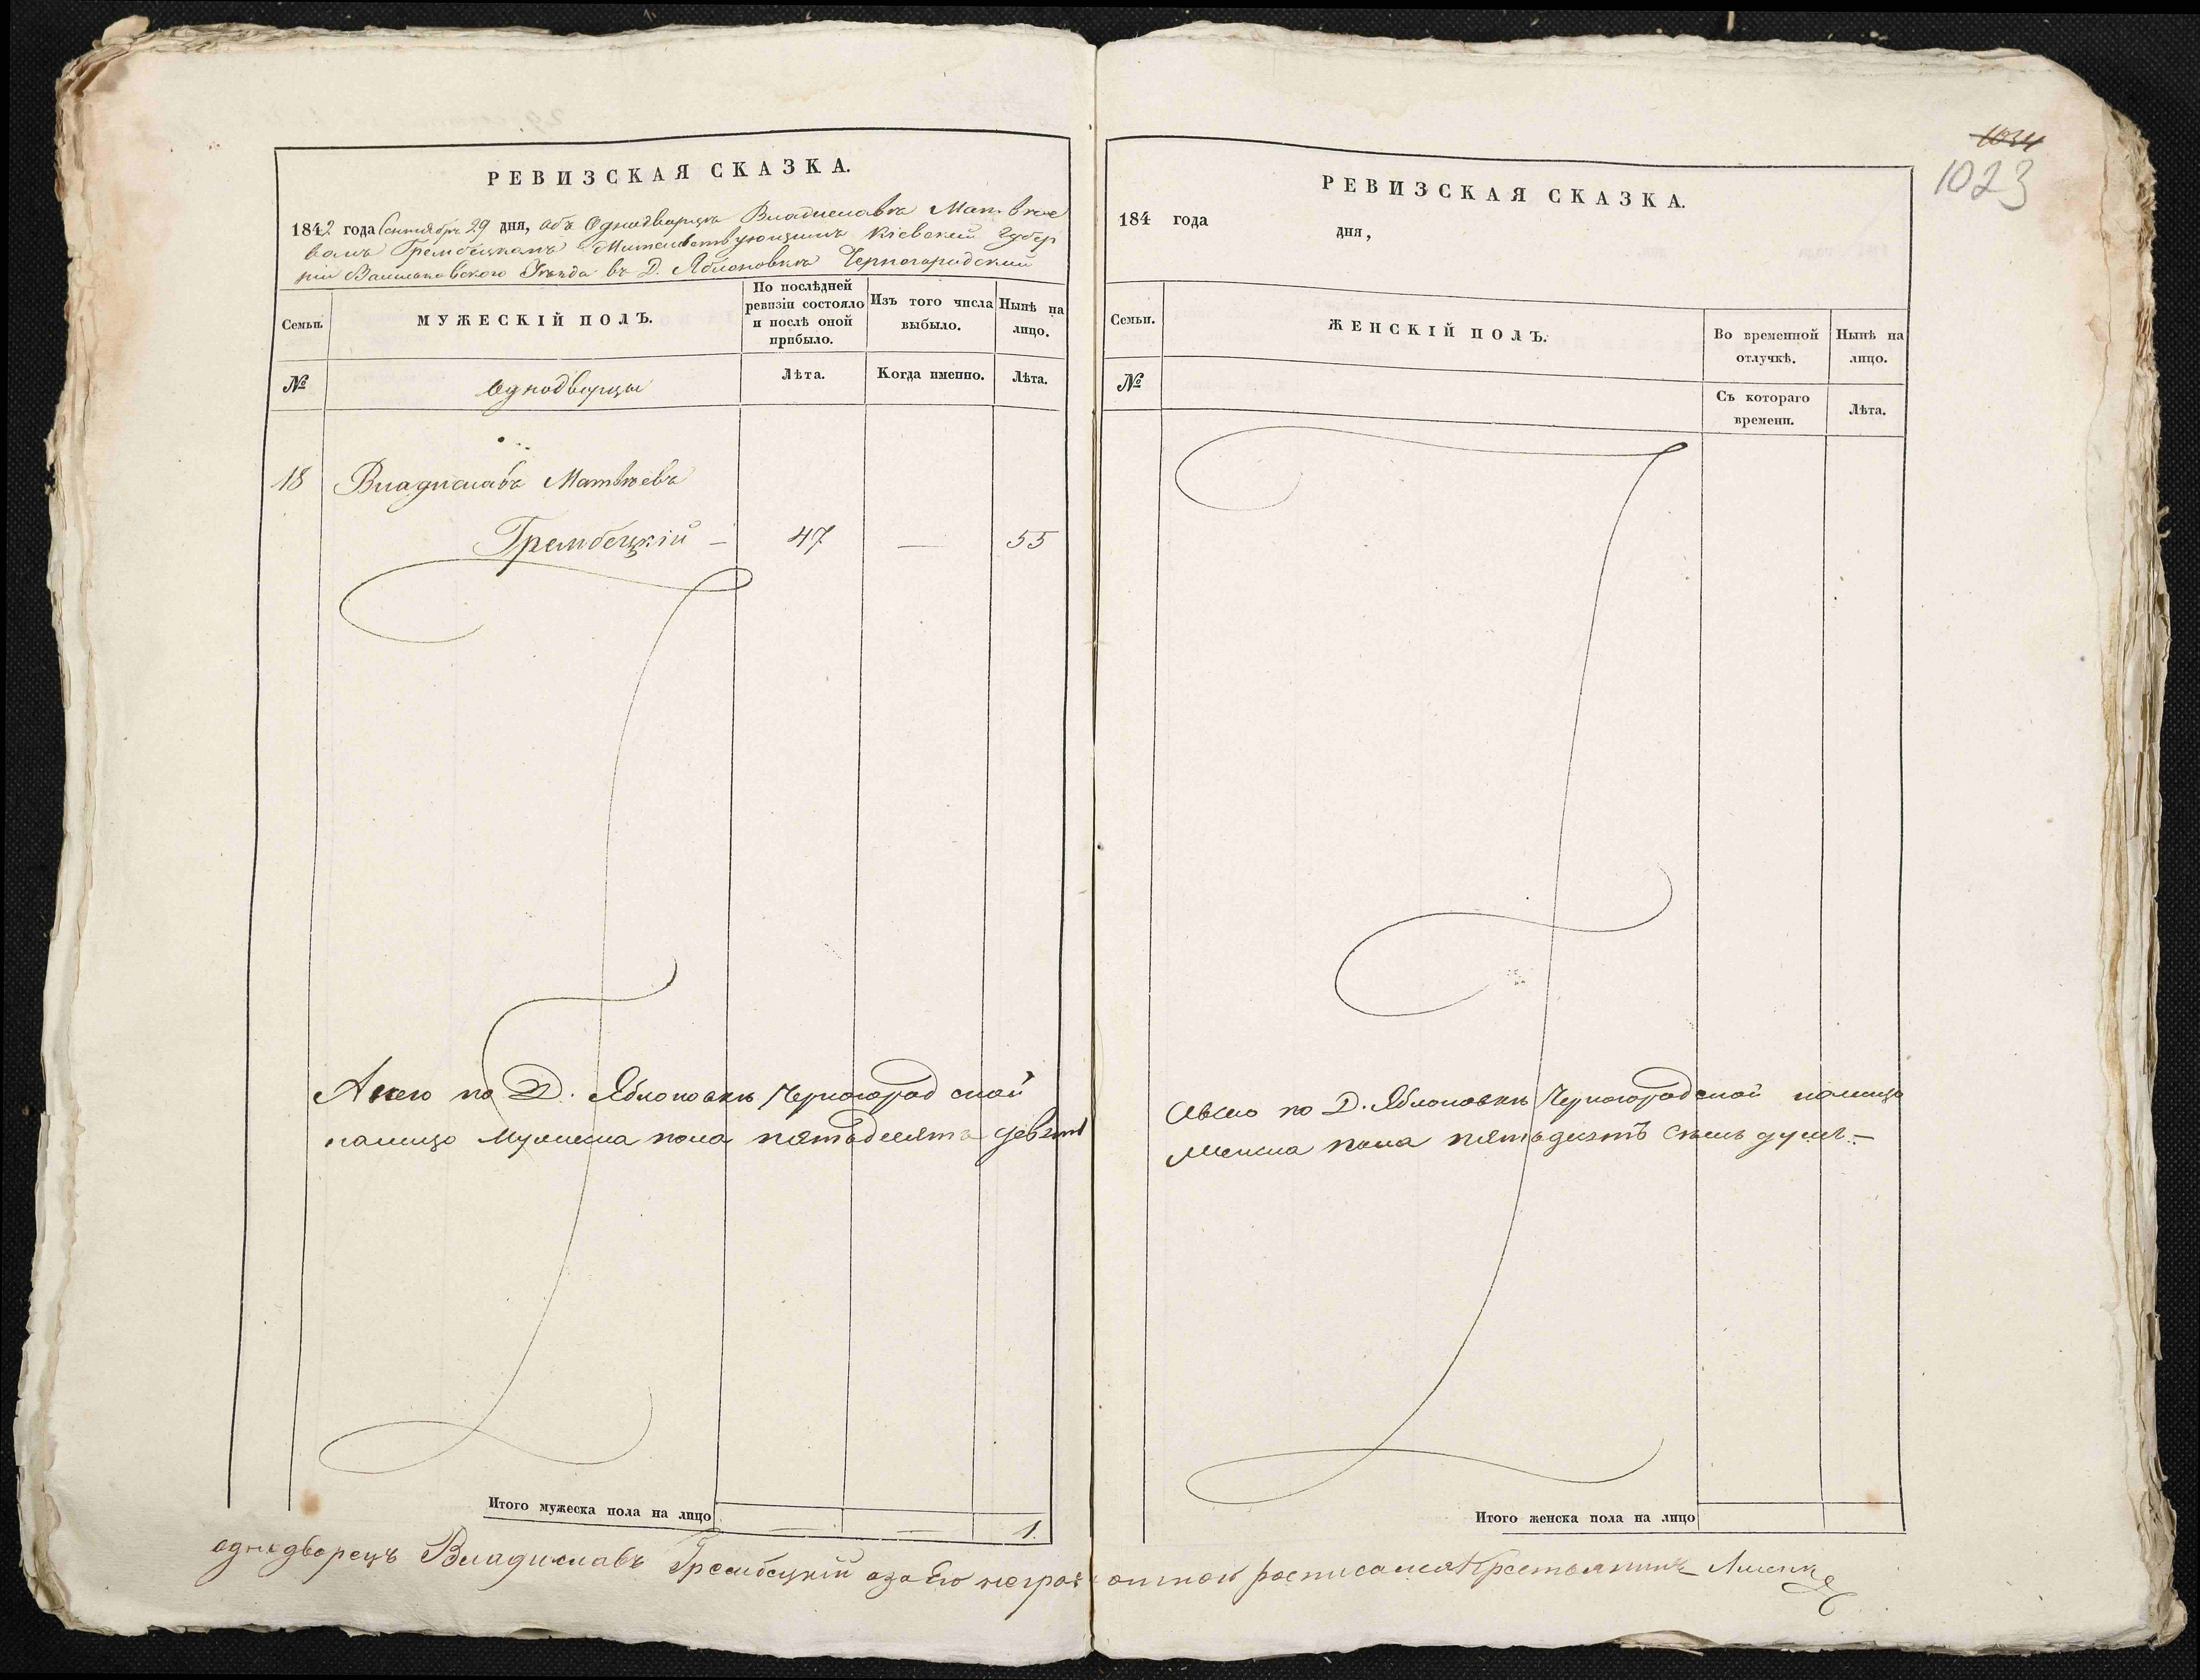 РЕВИЗСКАЯ СКАЗКА.
1842 года Сентября 29 дня, объ Однодворцѣ Владиславѣ Матвѣе
вомъ Грембецкомъ Жительствующимъ Кіевской Губер
ніи Васильковского Уѣзда въ Д. Яблоновкѣ Черногородской
Семьи.
МУЖЕСКІЙ ПОЛЪ.
По послѣдней
ревизіи состояло
и послѣ оной
прибыло.
Изъ того числа
выбыло.
Нынѣ на
лицо.
№
Однодворцы
Лѣта.
Когда именно.
Лѣта.
18 Владиславъ Матвѣевъ
Грембецкій — 47 — 55
по Д. Яблоновкѣ Черногородской
налицо Мужеска пола пятьдесятъ девять
Итого мужеска пола на лицо — — 1.
1034
1023
РЕВИЗСКАЯ СКАЗКА.
184 года дня,
Семьи.
ЖЕНСКІЙ ПОЛЪ.
Во временной
отлучкѣ.
Нынѣ на
лицо.
№
Съ котораго
времени.
Лѣта.
по Д. Яблоновкѣ Черногородской налицо
Женска пола пятьдесятъ семь душъ.—
Итого женска пола на лицо
однодворецъ Владиславъ Грембецкій а за Его неграмотною росписался Крестьянинъ